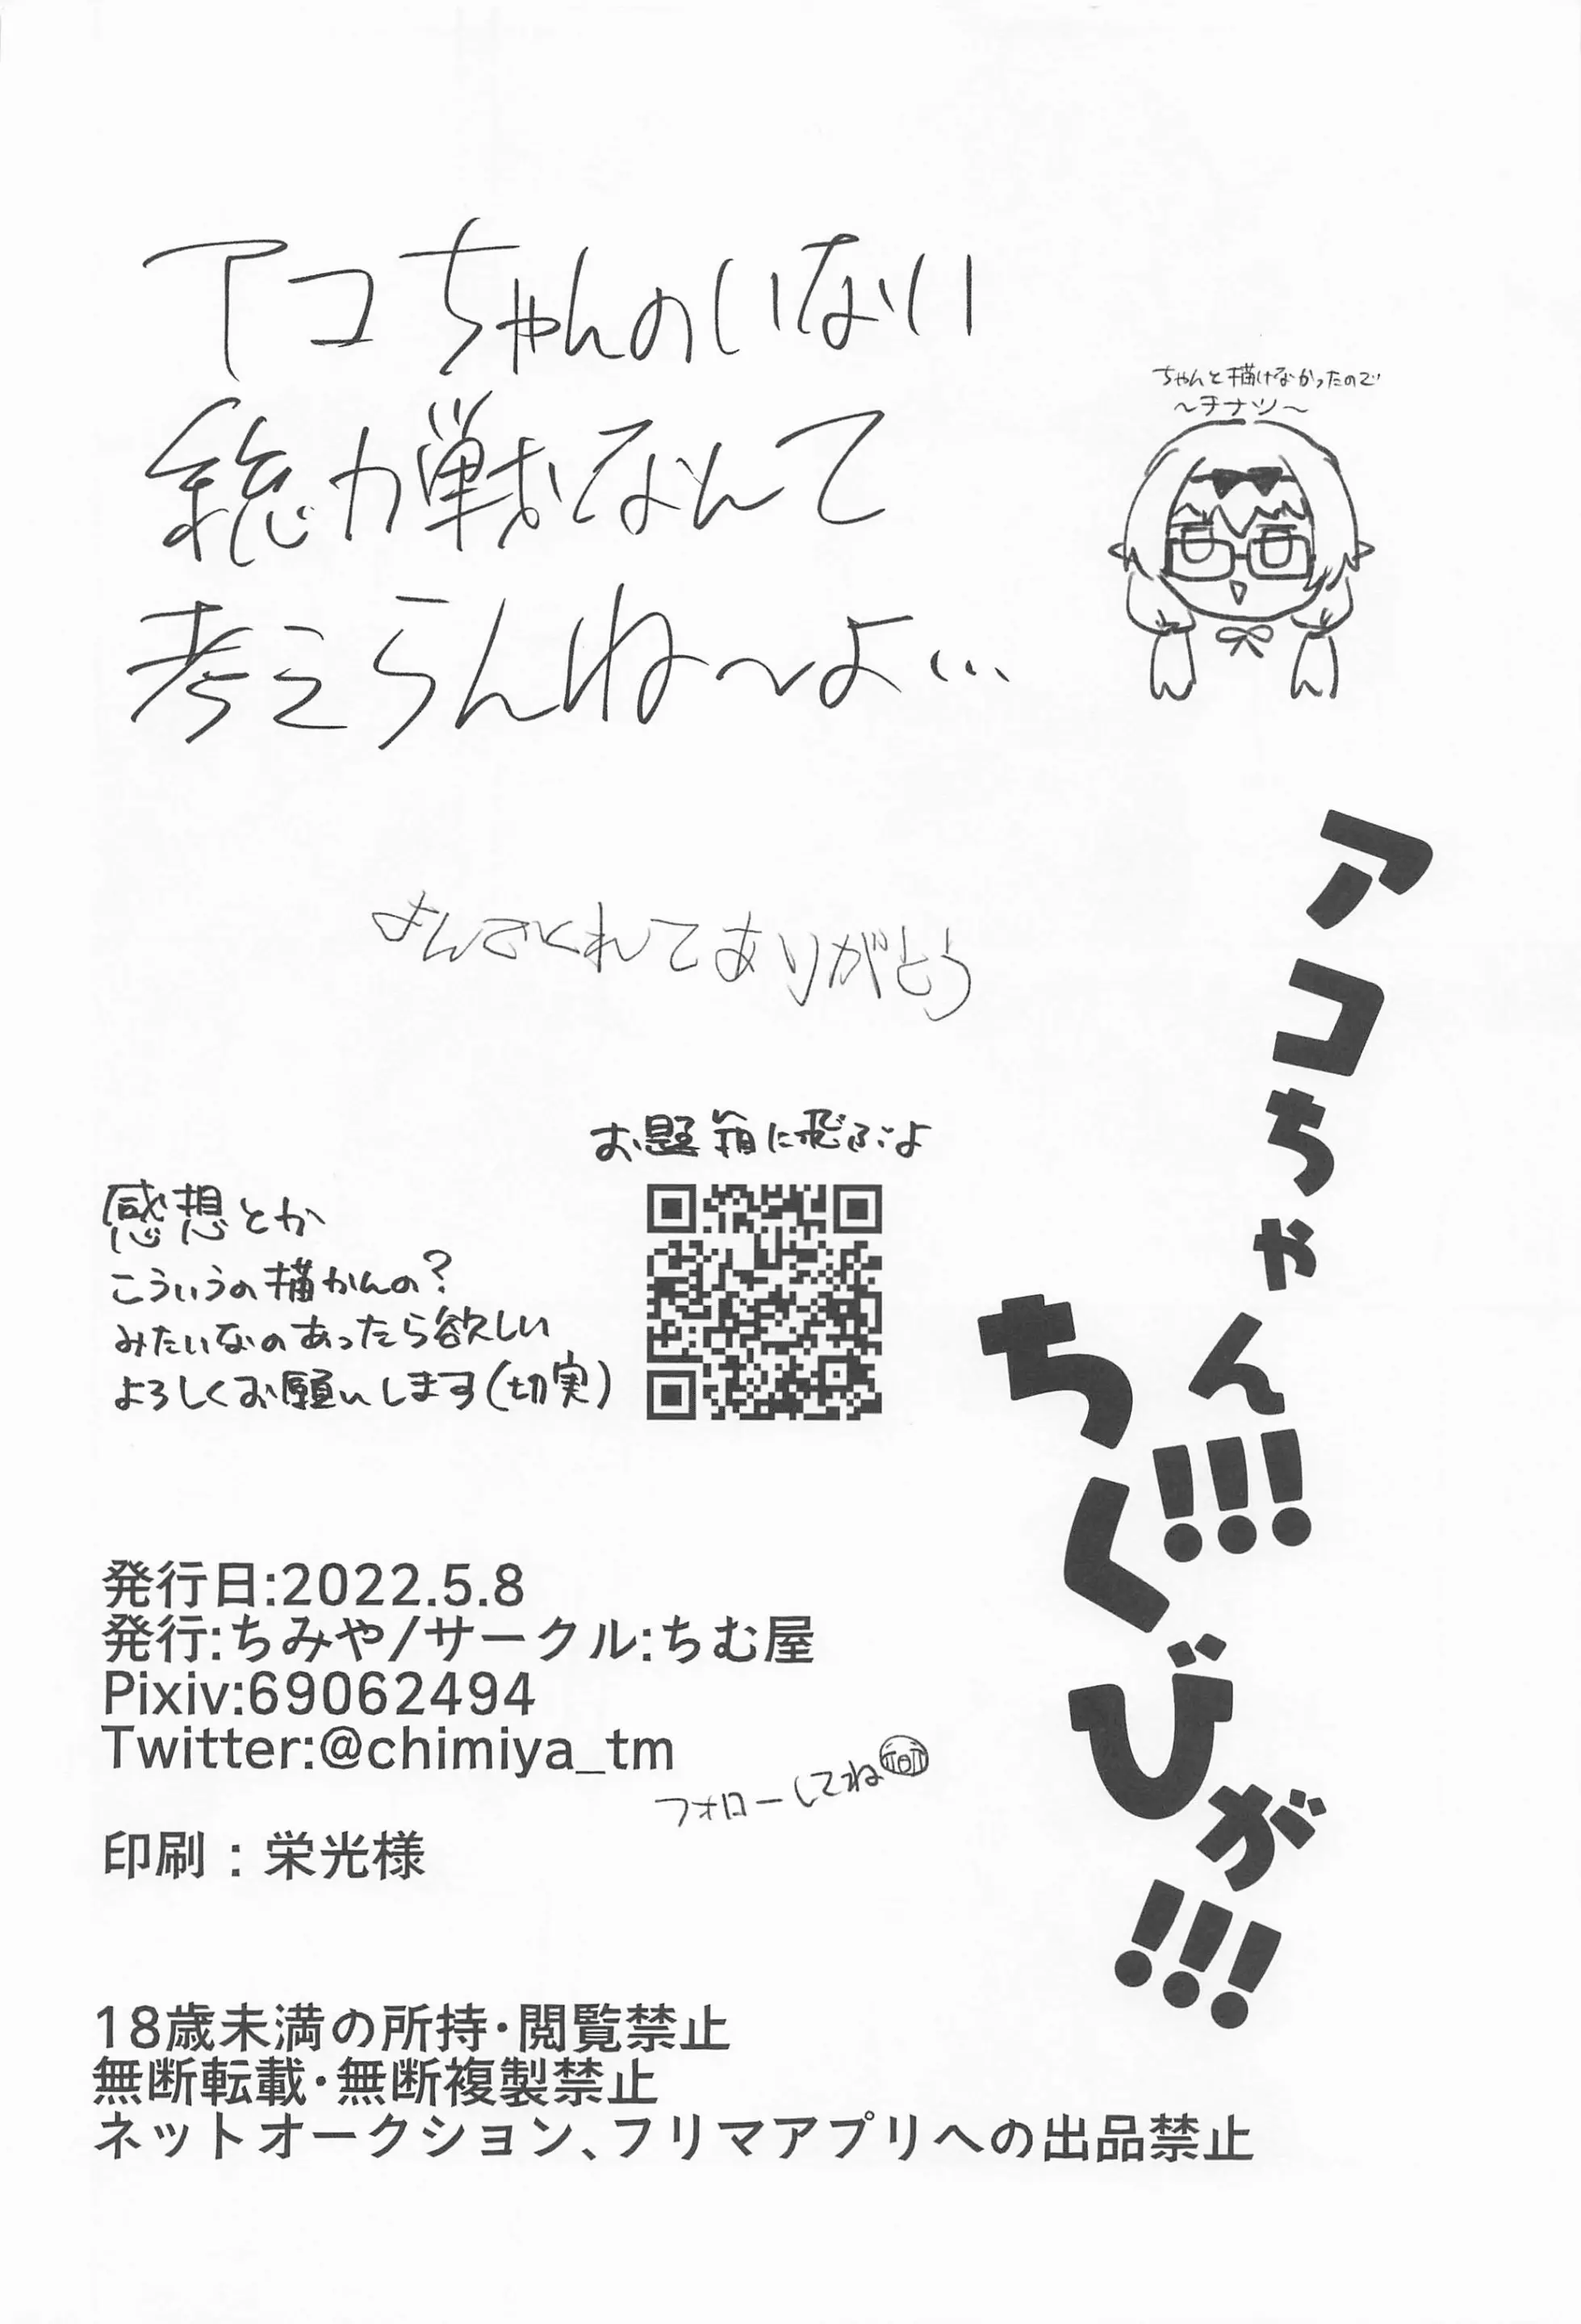 アコちゃんのいない
総力戦なんて
考えらんね〜よ…
ちゃんと描けなかったので
〜チナツ〜
よんでくれてありがとう
アコちゃん!!!
ちくびが!!!
お題箱に飛ぶよ
感想とか
こういうの描かんの?
みたいなのあったら欲しい
よろしくお願いします(切実)
発行日:2022.5.8
発行:ちみや/サークル:ちむ屋
Pixiv:69062494
Twitter:@chimiya_tm
フォローしてね
印刷:栄光様
18歳未満の所持・閲覧禁止
無断転載・無断複製禁止
ネットオークション、フリマアプリへの出品禁止